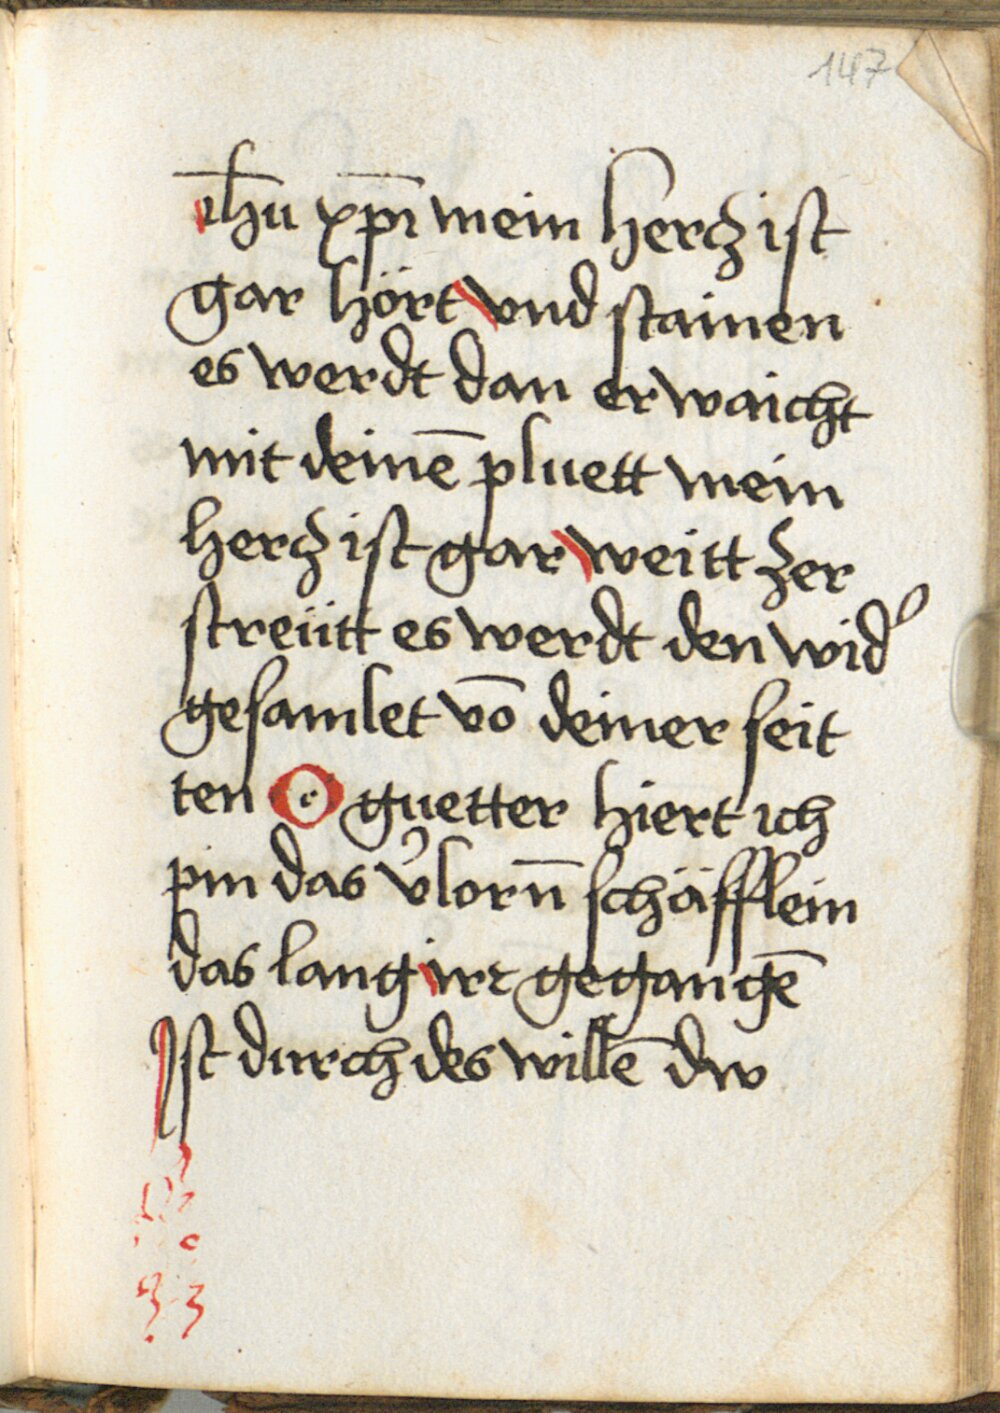 147
ihu xpi mein hercz ist
gar hört vnd stainen
es werdt dan erwaicht
mit deinē pluett mein
hercz ist gar weitt zer
streütt es werdt den wid᾽
gesamlet vō deiner seit
ten O guetter hiert ich
pin das v᾽lorn̄ schäfflein
das lang irr gegangē
Ist durch des willē dw